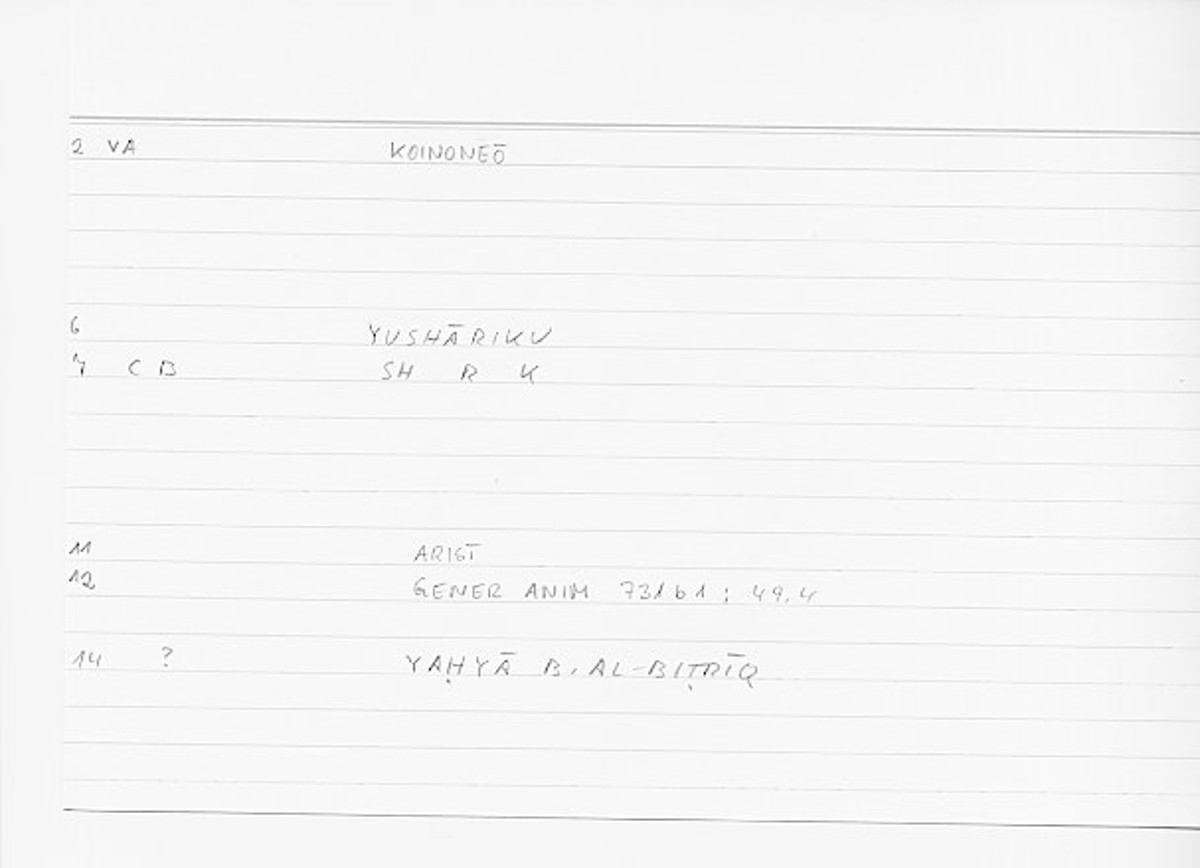 2 VA KOINONEŌ
6 YUSHĀRIKU
7 C B SH R K
11 ARIST
12 GENER ANIM 731b1 ; 49.4
14 ? YAḤYĀ B. AL-BIṬRĪQ